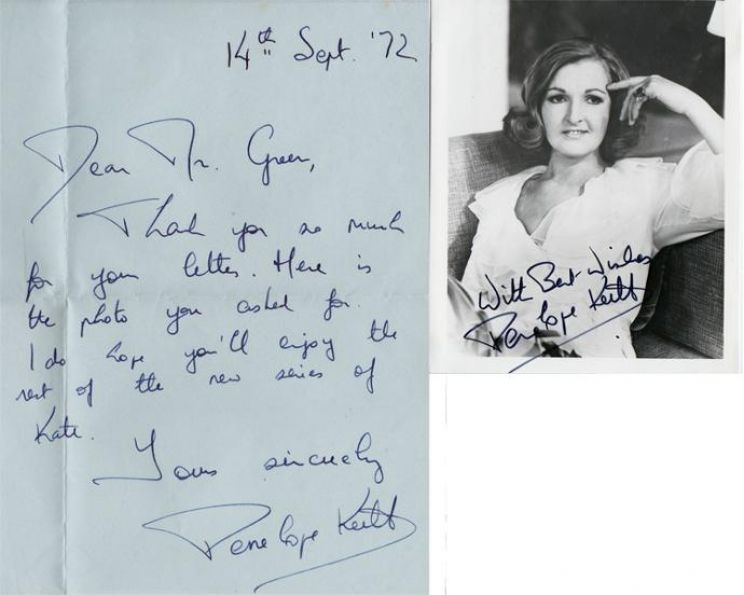 14th Sept. '72
Dear Mr. Green,
Thank you so much
for your letter. Here is
the photo you asked for.
I do hope you'll enjoy the
rest of the new series of
Kate.
Yours sincerely
Penelope Keith
With Best Wishes
Penelope Keith